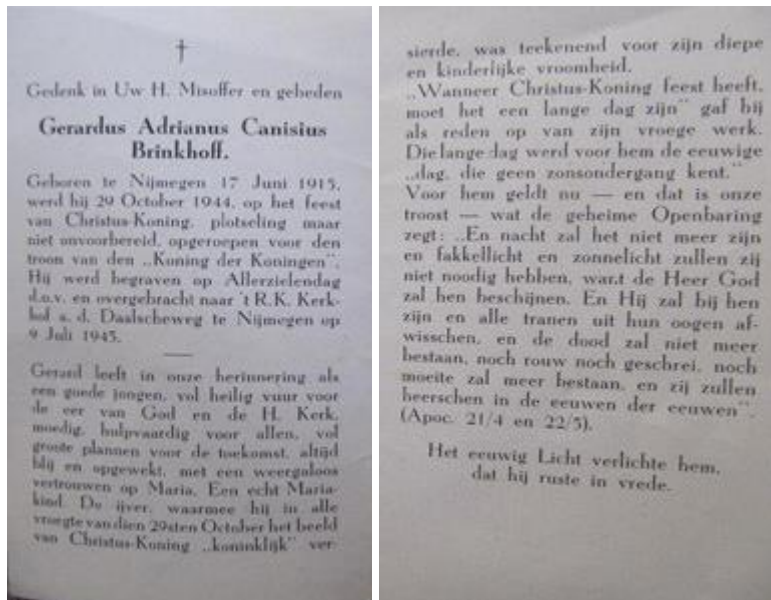 Gedenk in Uw H. Misoffer en gebeden
Gerardus Adrianus Canisius
Brinkhoff.
Geboren te Nijmegen 17 Juni 1915,
werd hij 29 October 1944, op het feest
van Christus-Koning, plotseling maar
niet onvoorbereid, opgeroepen voor den
troon van den „Koning der Koningen".
Hij werd begraven op Allerzielendag
d.o.v. en overgebracht naar 't R.K. Kerk-
hof a. d. Daalscheweg te Nijmegen op
9 Juli 1945.
Gerard leeft in onze herinnering als
een goede jongen, vol heilig vuur voor
de eer van God en de H. Kerk,
moedig, hulpvaardig voor allen, vol
groote plannen voor de toekomst, altijd
blij en opgewekt, met een weergaloos
vertrouwen op Maria. Een echt Maria-
kind. De ijver, waarmee hij in alle
vroegte van dien 29sten October het beeld
van Christus-Koning „koninklijk" ver-
sierde, was teekenend voor zijn diepe
en kinderlijke vroomheid.
„Wanneer Christus-Koning feest heeft,
moet het een lange dag zijn" gaf hij
als reden op van zijn vroege werk.
Die lange dag werd voor hem de eeuwige
„dag, die geen zonsondergang kent."
Voor hem geldt nu — en dat is onze
troost — wat de geheime Openbaring
zegt: „En nacht zal het niet meer zijn
en fakkellicht en zonnelicht zullen zij
niet noodig hebben, want de Heer God
zal hen beschijnen. En Hij zal bij hen
zijn en alle tranen uit hun oogen af-
wisschen, en de dood zal niet meer
bestaan, noch rouw noch geschrei, noch
moeite zal meer bestaan, en zij zullen
heerschen in de eeuwen der eeuwen"
(Apoc. 21/4 en 22/5).
Het eeuwig Licht verlichte hem,
dat hij ruste in vrede.